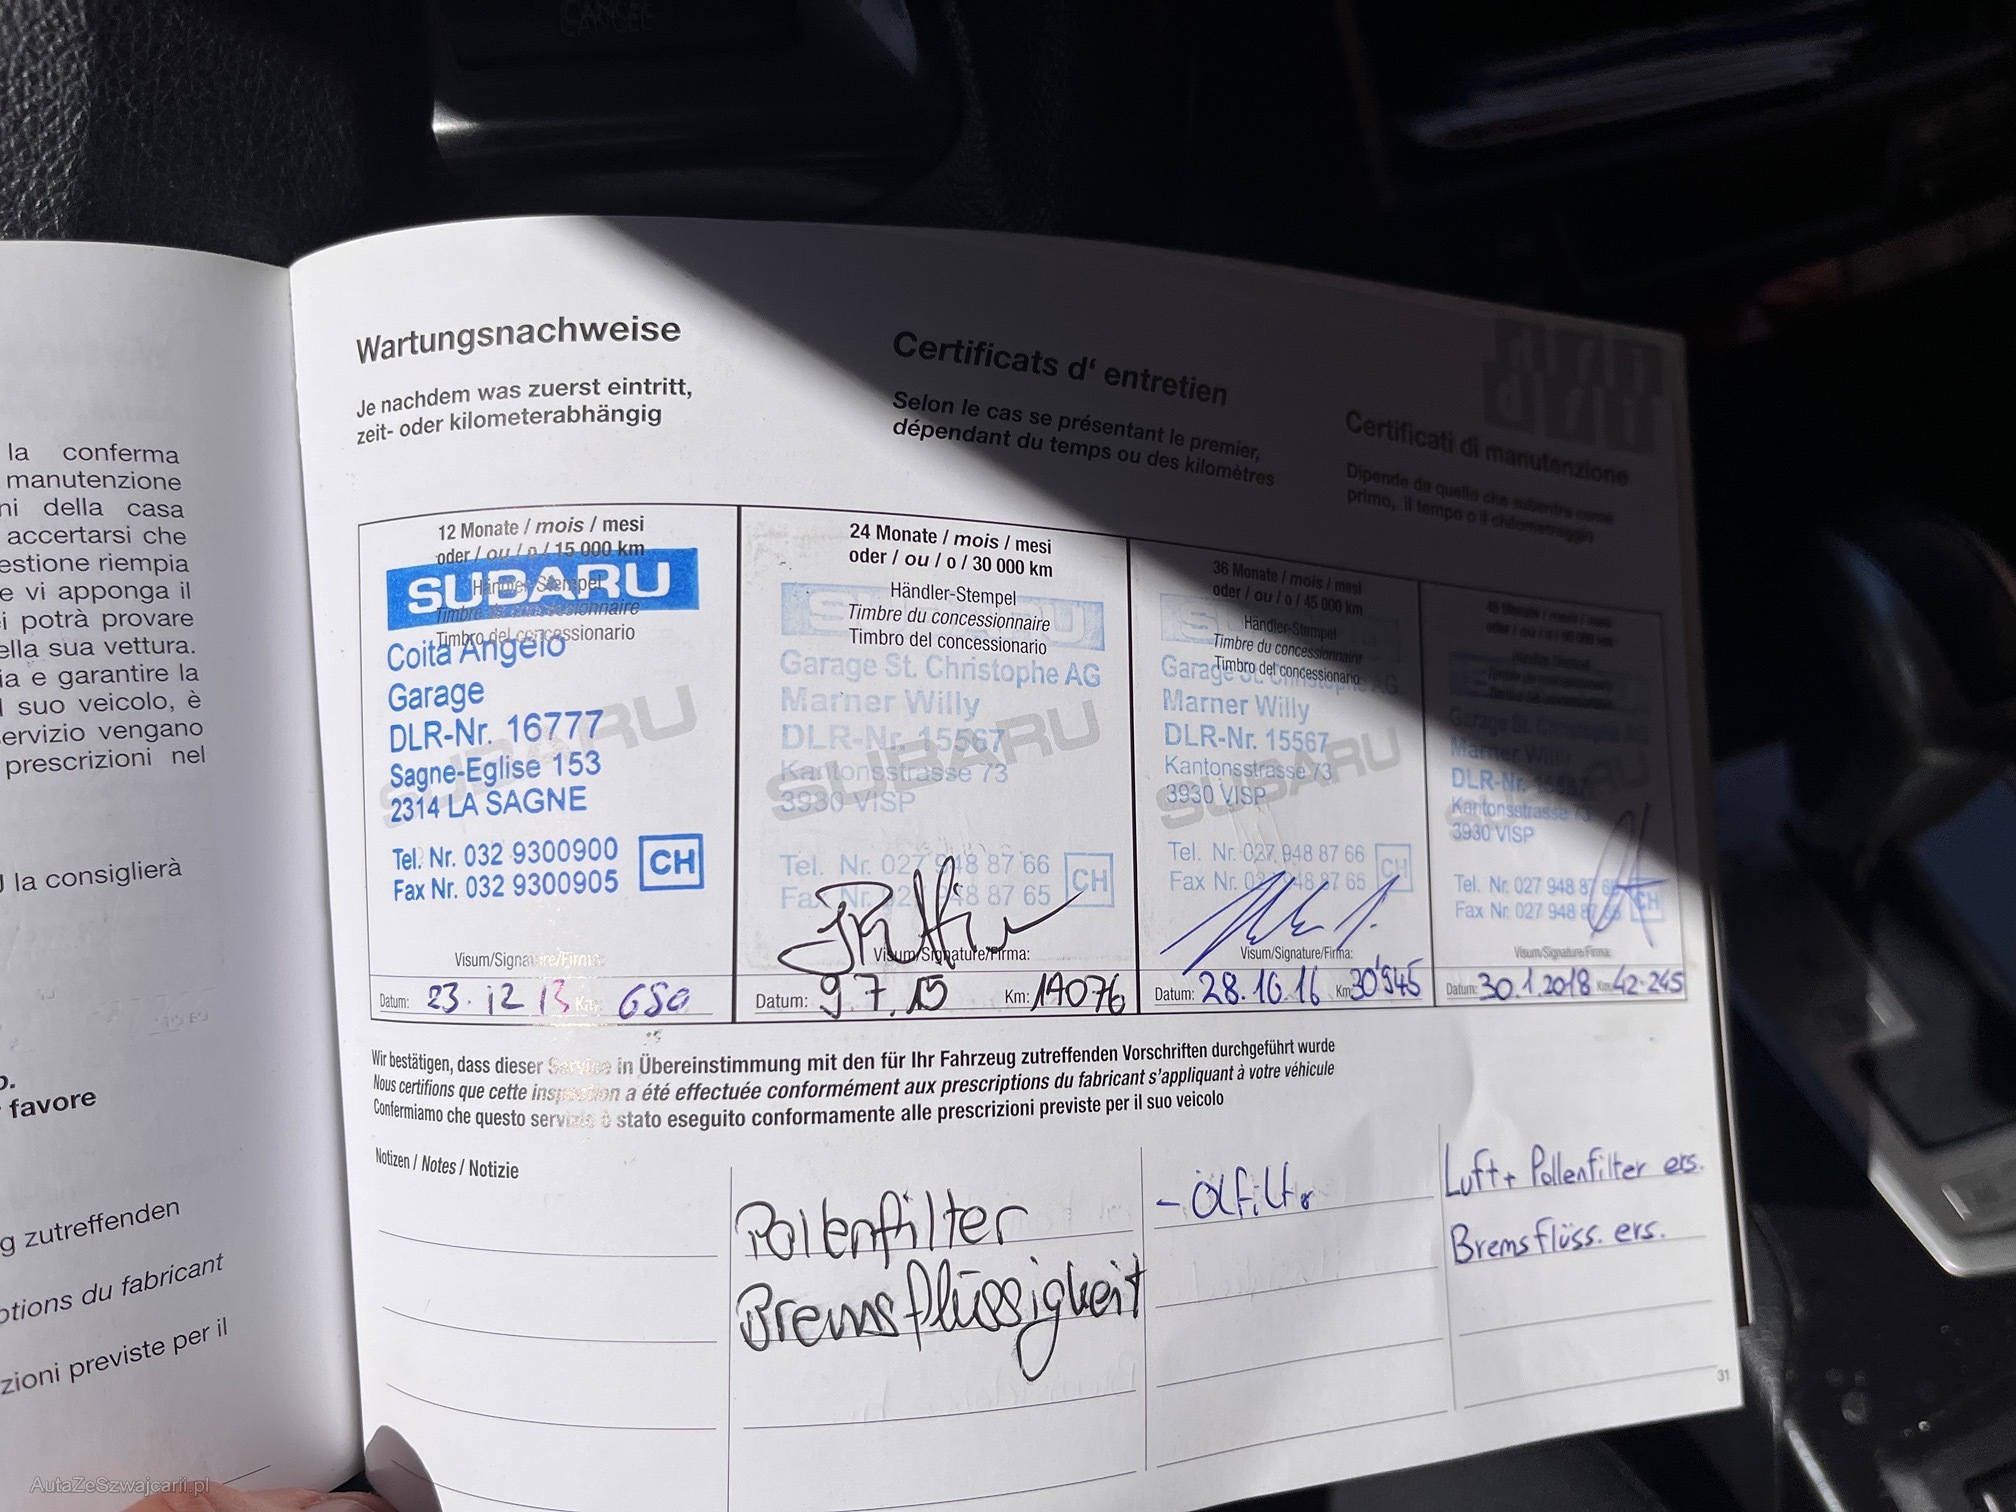 CANCEL
Wartungsnachweise
Je nachdem was zuerst eintritt,
zeit- oder kilometerabhängig
Certificats d' entretien
Selon le cas se présentant le premier,
dépendant du temps ou des kilomètres
Certificati di manutenzione
Dipende da quello che subentra come
primo, il tempo o il chilometraggio
la conferma
manutenzione
ni della casa
accertarsi che
estione riempia
e vi apponga il
i potrà provare
ella sua vettura.
ia e garantire la
l suo veicolo, è
ervizio vengano
prescrizioni nel
J la consiglierà
o.
favore
g zutreffenden
ptions du fabricant
zioni previste per il
12 Monate / mois / mesi
oder / ou / o / 15 000 km
SUBARU
Händler-Stempel
Timbre du concessionnaire
Timbro del concessionario
Coita Angelo
Garage
DLR-Nr. 16777
SUBARU
Sagne-Eglise 153
2314 LA SAGNE
Tel. Nr. 032 9300900
Fax Nr. 032 9300905
CH
Visum/Signature/Firma:
Datum: 23.12 13 Km: 650
24 Monate / mois / mesi
oder / ou / o / 30 000 km
SUBARU
Händler-Stempel
Timbre du concessionnaire
Timbro del concessionario
Garage St. Christophe AG
Marner Willy
DLR-Nr. 15567
SUBARU
Kantonsstrasse 73
3930 VISP
Tel. Nr. 027 948 87 66
Fax Nr. 027 948 87 65
CH
Visum/Signature/Firma:
Datum: 9.7.15 Km: 19076
36 Monate / mois / mesi
oder / ou / o / 45 000 km
Händler-Stempel
Timbre du concessionnaire
Timbro del concessionario
Garage St. Christophe AG
Marner Willy
DLR-Nr. 15567
SUBARU
Kantonsstrasse 73
3930 VISP
Tel. Nr. 027 948 87 66
Fax Nr. 027 948 87 65
CH
Visum/Signature/Firma:
Datum: 28.10.16 Km: 30'945
48 Monate / mois / mesi
oder / ou / o / 60 000 km
Händler-Stempel
Timbre du concessionnaire
Timbro del concessionario
Garage St. Christophe AG
Marner Willy
DLR-Nr. 15567
SUBARU
Kantonsstrasse 73
3930 VISP
Tel. Nr. 027 948 87 66
Fax Nr. 027 948 87 65
CH
Visum/Signature/Firma:
Datum: 30.1.2018 Km: 42.245
Wir bestätigen, dass dieser Service in Übereinstimmung mit den für Ihr Fahrzeug zutreffenden Vorschriften durchgeführt wurde
Nous certifions que cette inspection a été effectuée conformément aux prescriptions du fabricant s'appliquant à votre véhicule
Confermiamo che questo servizio è stato eseguito conformamente alle prescrizioni previste per il suo veicolo
Notizen / Notes / Notizie
Pollenfilter
Bremsflüssigkeit
- Ölfilter
Luft + Pollenfilter ers.
Bremsflüss. ers.
31
AutaZeSzwajcarii.pl